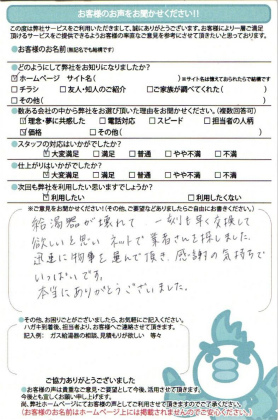 お客様のお声をお聞かせください!!
この度は弊社サービスをご利用いただきまして、誠にありがとうございます。お客様により一層ご満足
頂けるサービスをご提供できるようお客様の率直なご意見を参考にさせて頂きたいと思っております。
●お客様のお名前(無記名でも結構です)
●どのようにして弊社をお知りになりましたか?
☑ホームページ サイト名( )※サイト名は憶えておられたらで結構です
□チラシ □友人・知人のご紹介 □ご家族が調べてくれた( )
□その他( )
●数ある会社の中から弊社をお選び頂いた理由をお聞かせください。(複数回答可)
☑理念・夢に共感した □電話対応 □スピード □担当者の人柄
☑価格 □その他( )
●スタッフの対応はいかがでしたか?
☑大変満足 □満足 □普通 □やや不満 □不満
●仕上がりはいかがでしたか?
☑大変満足 □満足 □普通 □やや不満 □不満
●次回も弊社を利用したい思いますでしょうか?
☑利用したい □利用したくない
※ご意見をお聞かせください!(その他、ご要望などありましたらご自由にお書きください)
給湯器が壊れて 一刻も早く交換して
欲しいと思い ネットで業者さんを探しました。
迅速に物事を運んで頂き、感謝の気持ちで
いっぱいです。
本当にありがとうございました。
●その他、お困りごとがございましたら、お気軽にご記入ください。
ハガキ到着後、担当者より、お客様へご連絡させて頂きます。
記入例: ガス給湯器の相談、見積もりが欲しい 等々
ご協力ありがとうございました
●お客様の声は貴重なご意見・ご要望として今後、活用させて頂きます。
今後とも宜しくお願い申し上げます。
尚、弊社ホームページにてお客様の声としてご利用させて頂きますのでご了承ください。
(お客様のお名前はホームページ上には掲載されませんのでご安心ください。)